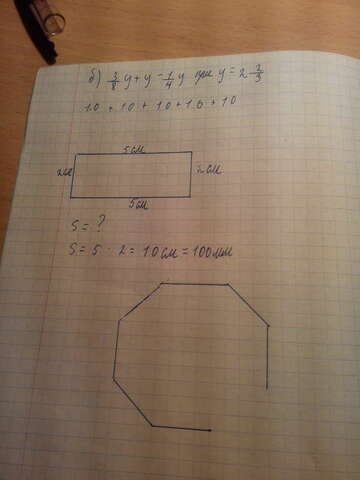 б) 3/8 y + y - 1/4 y при y = 2 2/3
10 + 10 + 10 + 10 + 10
5 см
2см 2см
5 см
S = ?
S = 5 · 2 = 10 см = 100мм